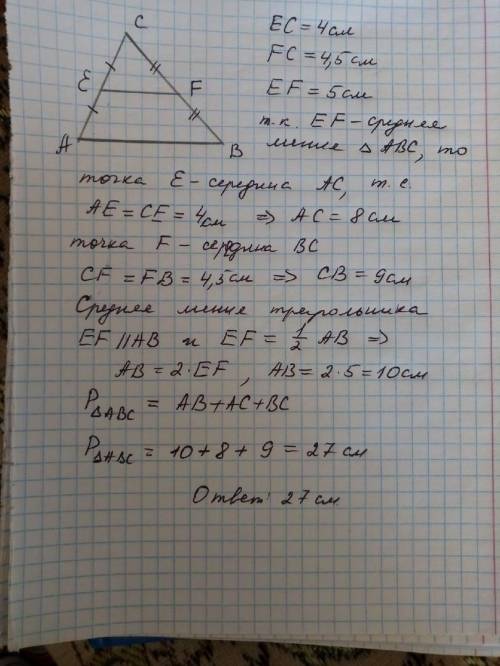 C
E
F
A
B
EC = 4 см
FC = 4,5 см
EF = 5 см
т.к. EF – среднее
линие △ ABC, то
точка E – середина AC, т.е.
AE = CE = 4см ⇒ AC = 8 см
точка F – середина BC
CF = FB = 4,5 см ⇒ CB = 9 см
Среднее линие треугольника
EF || AB и EF = 1/2 AB ⇒
AB = 2·EF , AB = 2·5 = 10 см
P△ABC = AB + AC + BC
P△ABC = 10 + 8 + 9 = 27 см
Ответ: 27 см